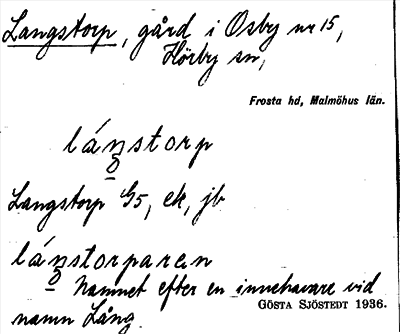 Langstorp, gård i Osby nr 15,
Hörby sn,
Frosta hd, Malmöhus län.
lánstorp
Langstorp G5, ek, jb
lánstorparen
Namnet efter en innehavare vid
GÖSTA SJÖSTEDT 1936.
namn Lång.